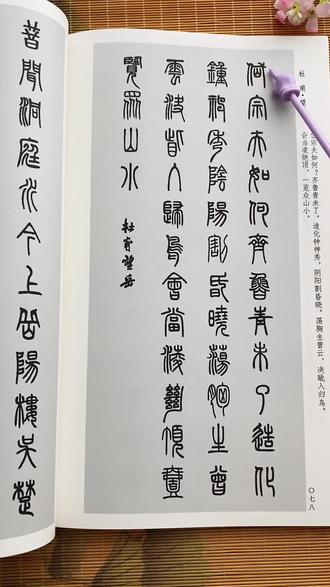 杜甫·望
宗夫如何？齐鲁青未了。造化钟神秀，阴阳割昏晓。荡胸生曾云，决眦入归鸟。
会当凌绝顶，一览众山小。
岱宗夫如何齊魯青未了造化
鍾神秀陰陽割昏曉蕩胸生曾
雲決眥入歸鳥會當淩絕頂壹
覽眾山小
杜甫望岳
〇七八
昔聞洞庭水今上岳陽樓吳楚